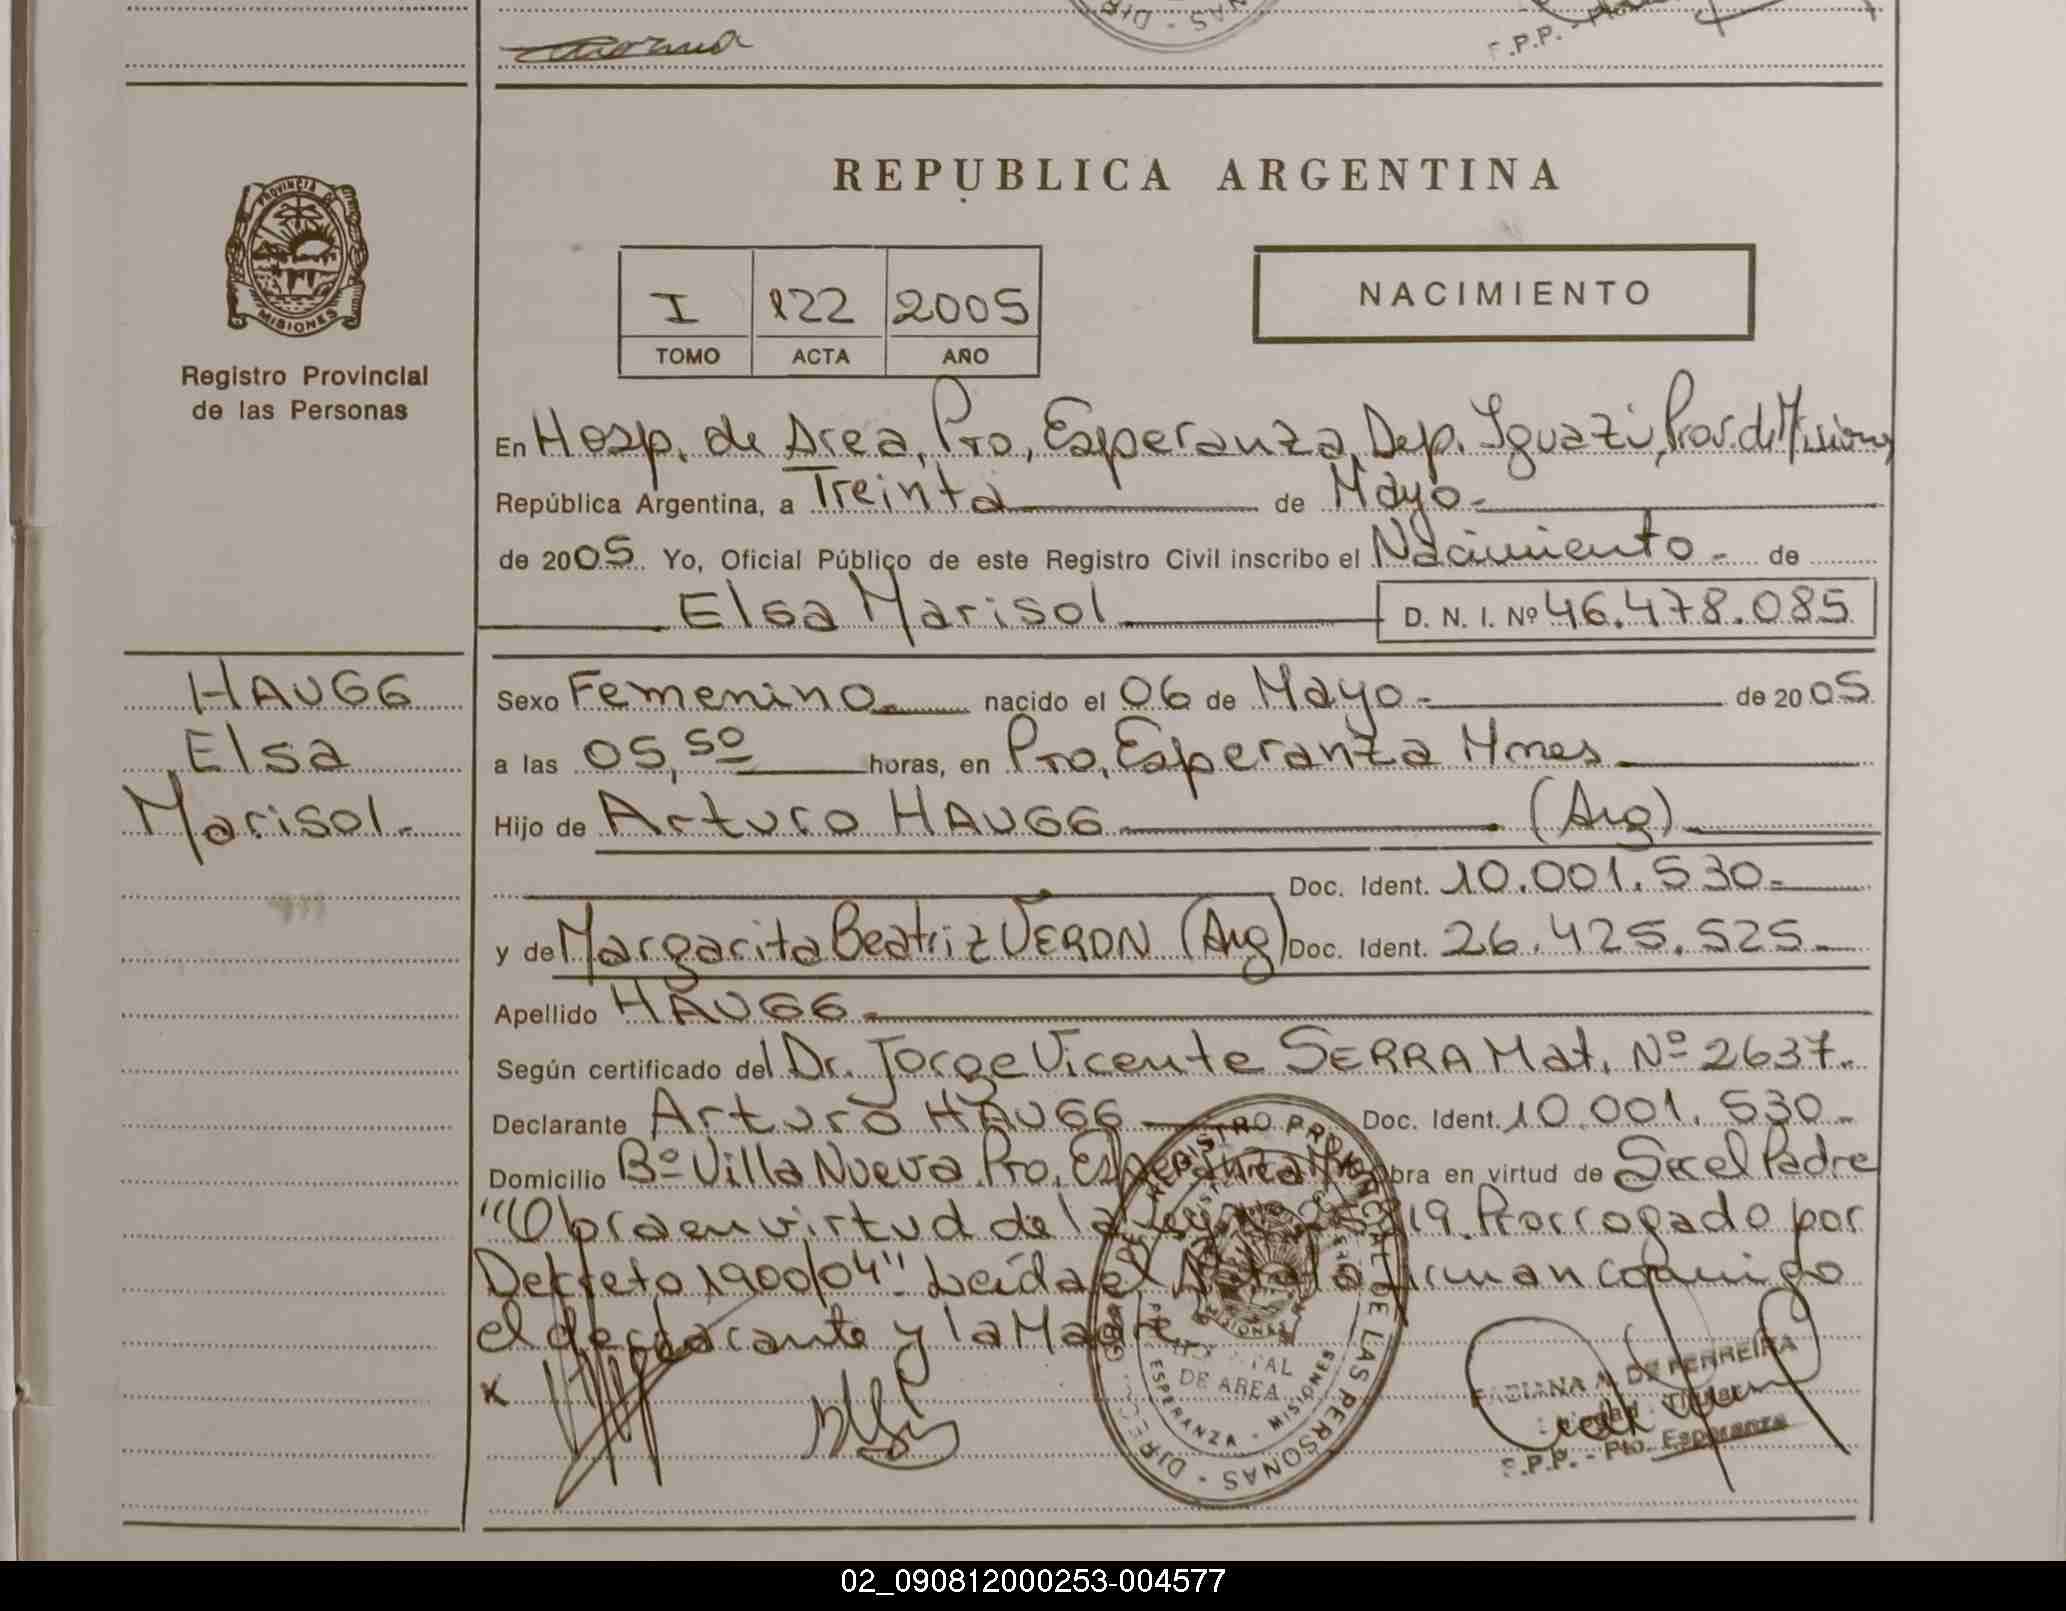 F.P.P. -
REPUBLICA ARGENTINA
PROVINCIA DE
MISIONES
Registro Provincial
de las Personas
I 122 2005
TOMO ACTA AÑO
NACIMIENTO
En Hosp. de Area, Pto, Esperanza, Dep. Iguazú, Prov. de Misiones
República Argentina, a Treinta de Mayo.-
de 2005. Yo, Oficial Público de este Registro Civil inscribo el Nacimiento.- de
Elsa Marisol D. N. I. Nº 46.478.085
HAUGG
Elsa
Marisol.-
Sexo Femenino.- nacido el 06 de Mayo.- de 2005.
a las 05,50 horas, en Pto, Esperanza Mnes
Hijo de Arturo HAUGG (Arg)
Doc. Ident. 10.001.530.-
y de Margarita Beatriz VERON (Arg) Doc. Ident. 26.425.525.-
Apellido HAUGG.-
Según certificado del Dr. Jorge Vicente SERRA Mat. Nº 2637.-
Declarante Arturo HAUGG Doc. Ident. 10.001.530.-
Domicilio Bº Villa Nueva Pto, Esperanza Obra en virtud de Ser el Padre
"Obra en virtud de la Ley 19. Prorrogado por
Decreto 1900/04". Leída el Acta la firman conmigo
el declarante y la Madre.
x
REGISTRO PROVINCIAL DE LAS PERSONAS
HOSPITAL
DE AREA
ESPERANZA - MISIONES
FABIANA A. DE FERREIRA
R.P.P. - Pto. Esperanza
02_090812000253-004577